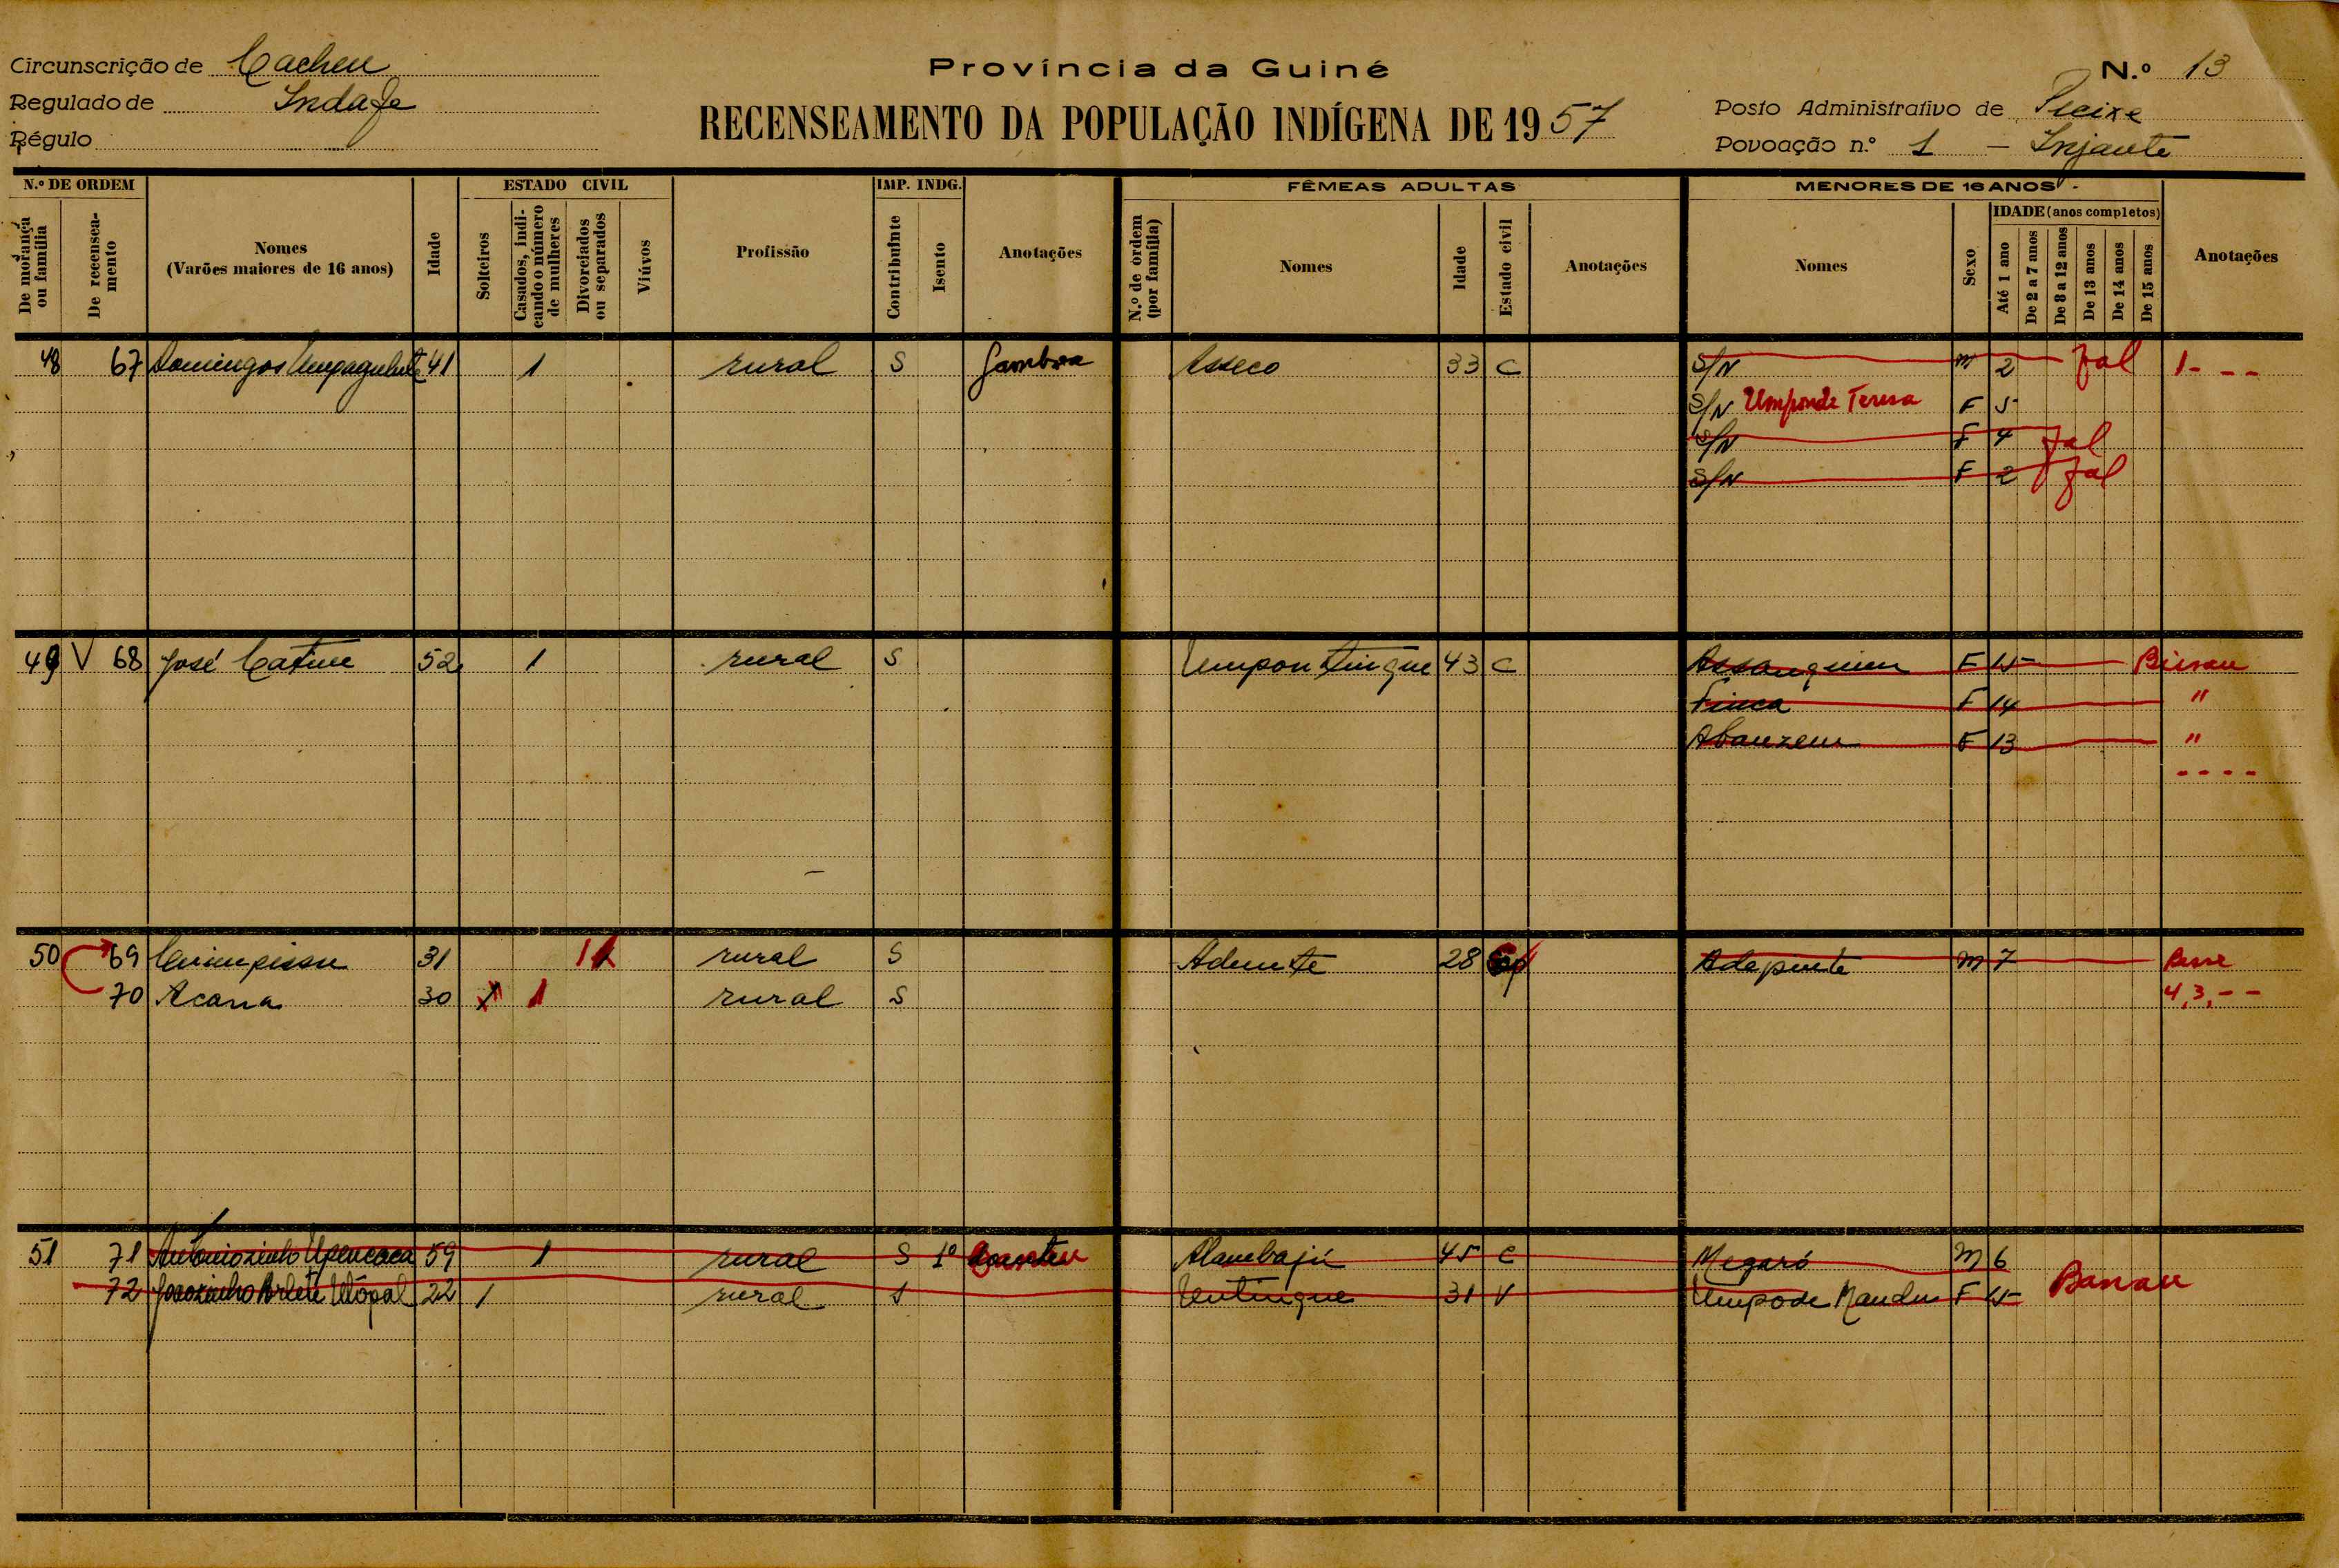 Circunscrição de Cacheu
Regulado de Indafe
Régulo
Província da Guiné
RECENSEAMENTO DA POPULAÇÃO INDÍGENA DE 1957
N.º 13
Posto Administrativo de Pecixe
Povoação n.º 1 — Injante
N.º DE ORDEM
De morança ou família
De recenseamento
Nomes
(Varões maiores de 16 anos)
Idade
ESTADO CIVIL
Solteiros
Casados, indicando o número de mulheres
Divorciados ou separados
Viúvos
Profissão
IMP. INDG.
Contribuinte
Isento
Anotações
FÊMEAS ADULTAS
N.º de ordem (por família)
Nomes
Idade
Estado civil
Anotações
MENORES DE 16 ANOS
Nomes
Sexo
IDADE (anos completos)
Até 1 ano
De 2 a 7 anos
De 8 a 12 anos
De 13 anos
De 14 anos
De 15 anos
Anotações
48 67 Domingos 41 1 rural S Gambea Asseco 33 C S/N M 2 fal 1 - - -
S/N Umponde Teresa F 5
S/N F 4 fal
S/N F 2 fal
49 V 68 José Catue 52 1 rural S Umpontingue 43 C Assanguim F 15 Bissau
Finca F 14 "
Abanzem F 13 "
- - - -
50 69 31 1 rural S Adunte 28 Adepunte M 7
70 Acana 30 1 rural S 4, 3, - -
51 71 59 1 rural S 1º Alambajú 45 C Megaró M 6
72 22 1 rural S Untingue 31 V Umpode Mandu F 15 Bassau